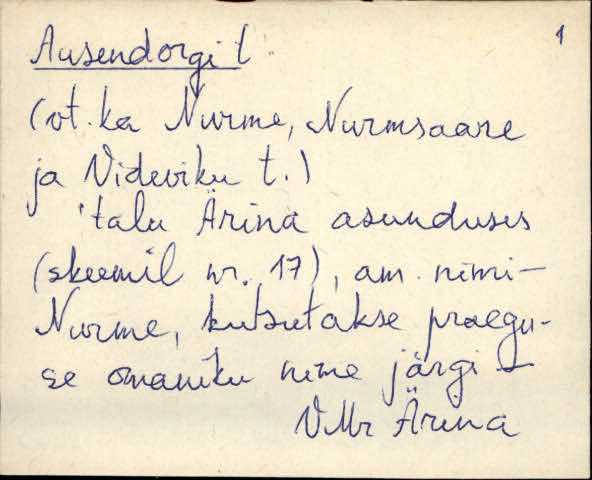 Ausendorgi t 1
(vt. ka Nurme, Nurmsaare
ja Videviku t.)
'talu Ärina asunduses
(skeemil nr. 17), am. nimi -
Nurme, kutsutakse praegu-
se omaniku nime järgi -
VMr Ärina